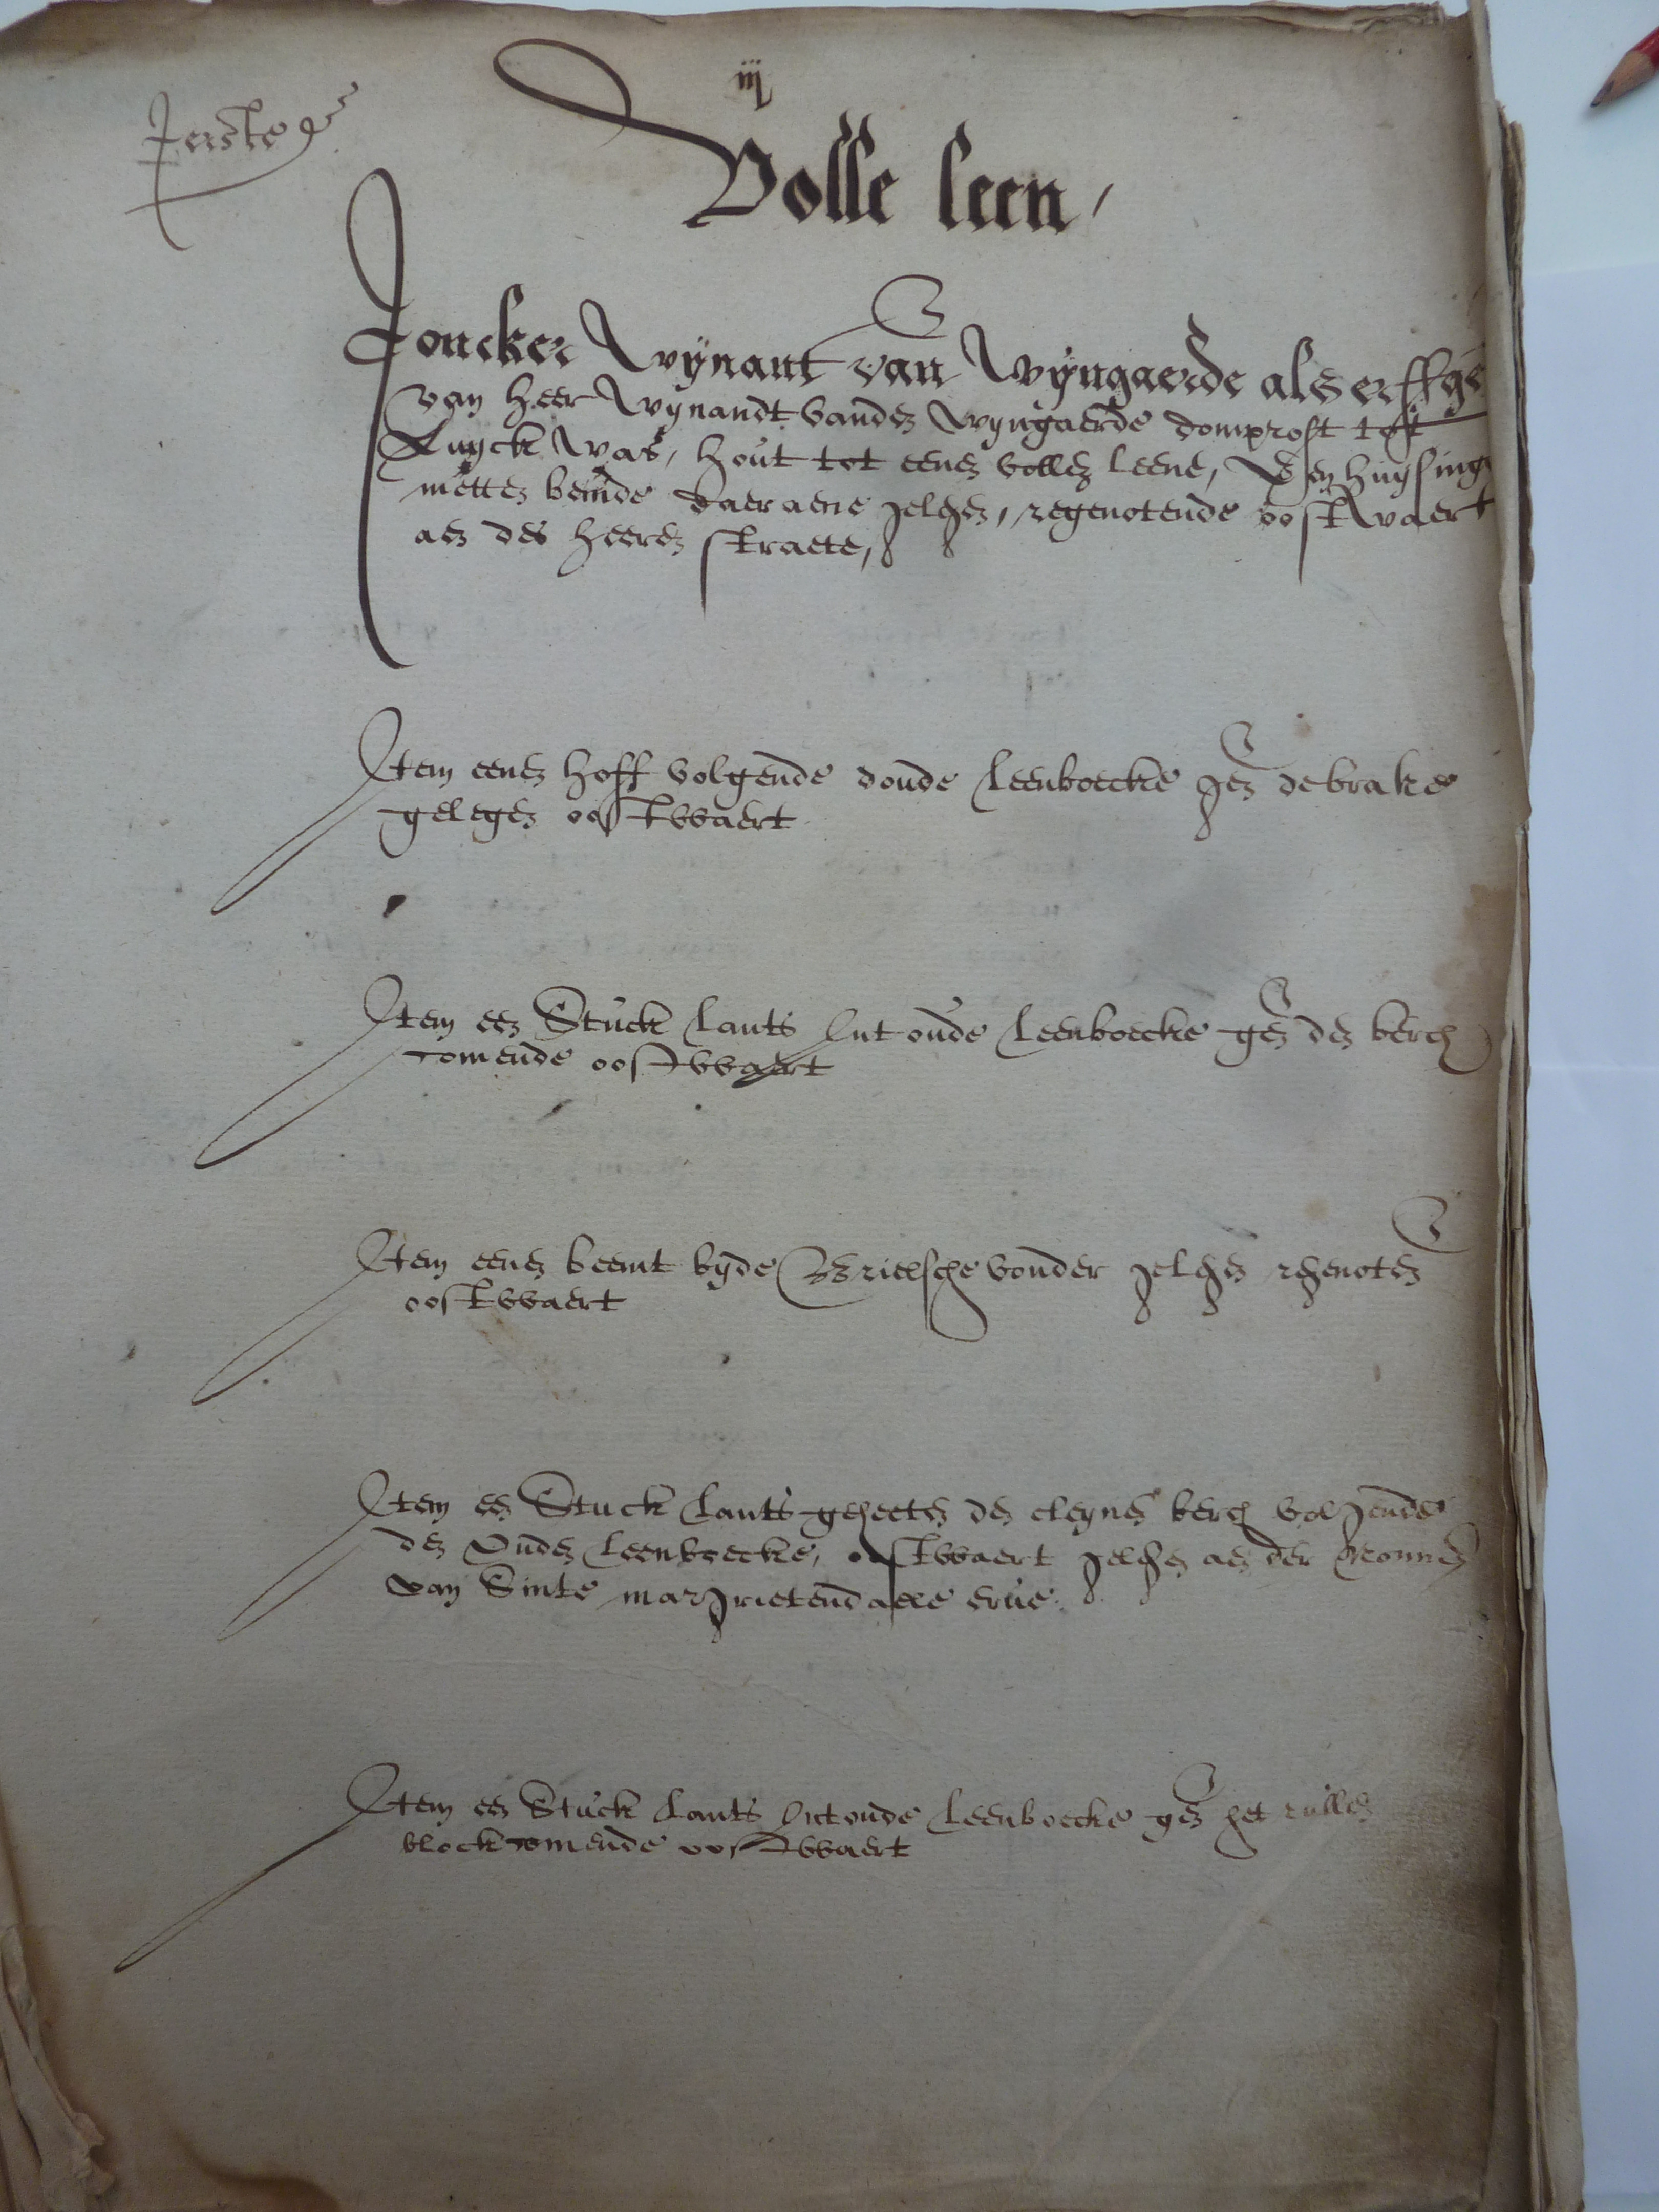 iij
Jerste
Volle leen,
Joncker Wynant van Wyngaerde als erffge
van heer Wynandt vanden Wyngaerde domprost tot
Luyck was, hout tot eenen vollen leene, Een huysinge
metten beemde daer aene gelegen, regenotende oostwaert
aen des heeren straete,
Item eenen hoff volgende doude leenboecke gen de brake
gelegen oostwaert
Item een stuck lants int oude leenboecke gen den berch
comende oostwaert
Item eenen beemt byde vonder gelegen regenoten
oostwaert
Item een stuck lants geheeten den cleynen berch volgende
den ouden leenboecke, oostwaert gelegen aen der Nonnen
van Sinte margrietendaele erve
Item een stuck lants int oude leenboecke gen het
block comende oostwaert